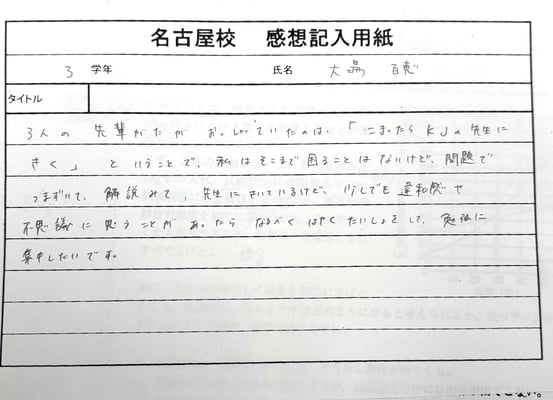 名古屋校 感想記入用紙
3 学年 氏名 大嶌 百恵
タイトル
3人の 先輩がたが おっしゃていたのは、「こまったら KJの先生に
きく」 ということで、私はそこまで困ることはないけど、問題で
つまずいて、解説みて、先生にきいているけど、少しでも違和感や
不思議に思うことがあったら なるべくはやくたいしょをして、勉強に
集中したいです。